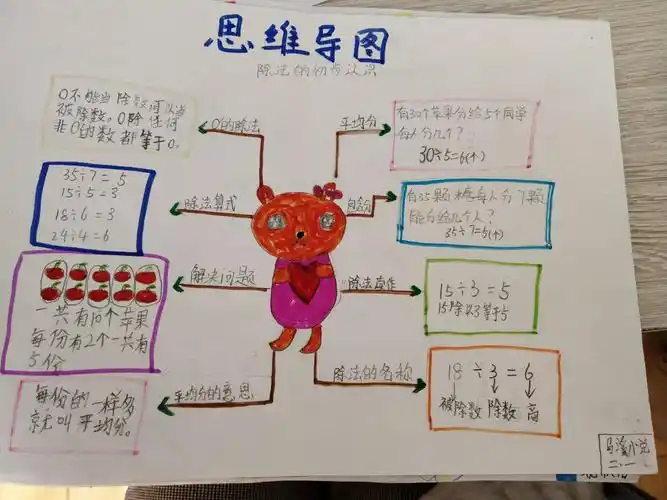 思维导图
除法的初步认识
0不能当除数可以当
被除数。0除以任何
非0的数都等于0。
0的除法
平均分
有30个苹果分给5个同学
每人分几个?
30÷5=6(个)
35÷7=5
15÷5=3
18÷6=3
24÷4=6
除法算式
包含分
有35颗糖每人分7颗
能分给几个人?
35÷7=5(个)
一共有10个苹果
每份有2个一共有
5份
解决问题
15÷3=5
15除以3等于5
每份的一样多
就叫平均分。
平均分的意思
除法的名称
18÷3=6
被除数 除数 商
二.一